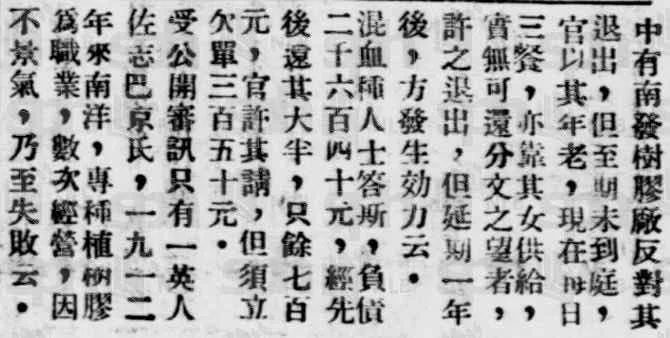 中有南發樹膠廠反對其
退出，但至期未到庭，
官以其年老，現在每日
三餐，亦靠其女供給，
實無可還分文之望者，
許之退出，但延期一年
後，方發生効力云。
混血種人士答斯，負債
二千六百四十元，經先
後還其大半，只餘七百
元，官許其請，但須立
欠單三百五十元。
受公開審訊只有一英人
佐志巴京氏，一九一二
年來南洋，專種植樹膠
爲職業，數次經營，因
不景氣，乃至失敗云。